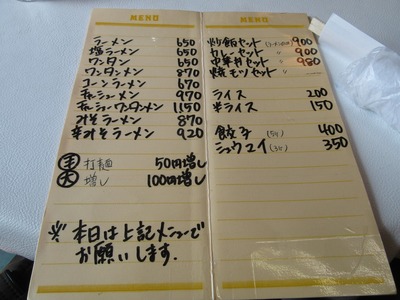 MENU
ラーメン 650
塩ラーメン 650
ワンタン 650
ワンタンメン 870
コーンラーメン 870
チャーシューメン 970
チャーシューワンタンメン 1150
みそラーメン 870
辛みそラーメン 920
手打麺 50円増し
大増し 100円増し
※本日は上記メニューで
お願いします.
MENU
炒飯セット 900
カレーセット 〃 900
中華丼セット 〃 980
焼モツセット 〃
ライス 200
半ライス 150
餃子(5ケ) 400
シュウマイ(3ケ) 350